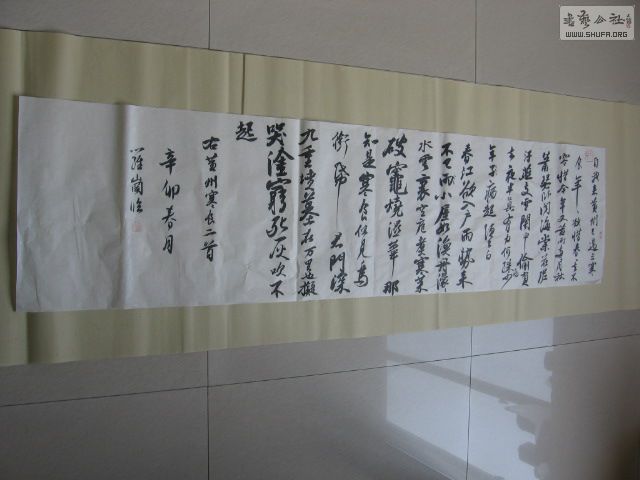 自我来黄州已過三寒
食年〻欲惜春春去不
容惜今年又苦雨兩月秋
蕭瑟卧聞海棠花泥
汙燕支雪闇中偷負
去夜半真有力何殊少
年子病起頭已白
春江欲入戶雨勢来
不已雨小屋如漁舟濛〻
水雲裏空庖煮寒菜
破竈燒濕葦那
知是寒食但見烏
銜帋君門深
九重墳墓在万里也擬
哭塗窮死灰吹不
起
右黄州寒食二首
辛卯春月
羅崗臨
書藝公社
WWW.SHUFA.ORG